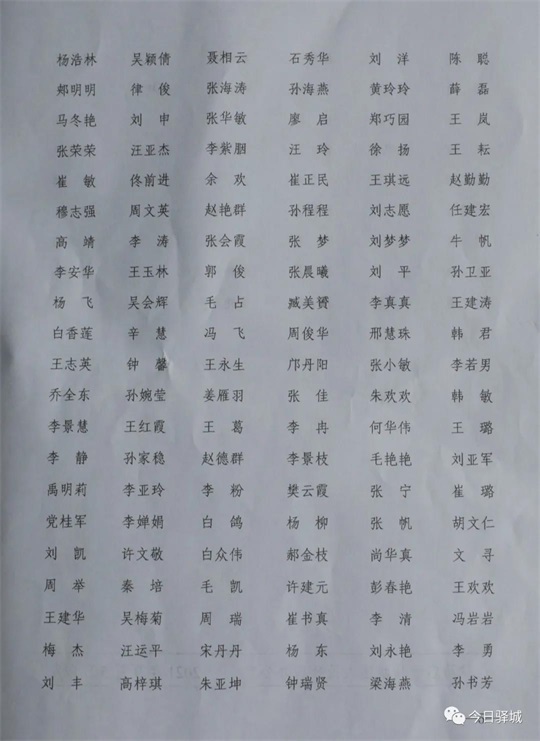 杨浩林 吴颖倩 聂相云 石秀华 刘 洋 陈 聪
郏明明 律 俊 张海涛 孙海燕 黄玲玲 薛 磊
马冬艳 刘 申 张华敏 廖 启 郑巧园 王 岚
张荣荣 汪亚杰 李紫胭 汪 玲 徐 扬 王 耘
崔 敏 佟前进 余 欢 崔正民 王琪远 赵勤勤
穆志强 周文英 赵艳群 孙程程 刘志愿 任建宏
高 靖 李 涛 张会霞 张 梦 刘梦梦 牛 帆
李安华 王玉林 郭 俊 张晨曦 刘 平 孙卫亚
杨 飞 吴会辉 毛 占 臧美赟 李真真 王建涛
白香莲 辛 慧 冯 飞 周俊华 邢慧珠 韩 君
王志英 钟 馨 王永生 邝丹阳 张小敏 李若男
乔全东 孙婉莹 姜雁羽 张 佳 朱欢欢 韩 敏
李景慧 王红霞 王 葛 李 冉 何华伟 王 璐
李 静 孙家稳 赵德群 李景枝 毛艳艳 刘亚军
禹明莉 李亚玲 李 粉 樊云霞 张 宁 崔 璐
党桂军 李婵娟 白 鸽 杨 柳 张 帆 胡文仁
刘 凯 许文敬 白众伟 郝金枝 尚华真 文 寻
周 举 秦 培 毛 凯 许建元 彭春艳 王欢欢
王建华 吴梅菊 周 瑞 崔书真 李 清 冯岩岩
梅 杰 汪运平 宋丹丹 杨 东 刘永艳 李 勇
刘 丰 高梓琪 朱亚坤 钟瑞贤 梁海燕 孙书芳
今日驿城